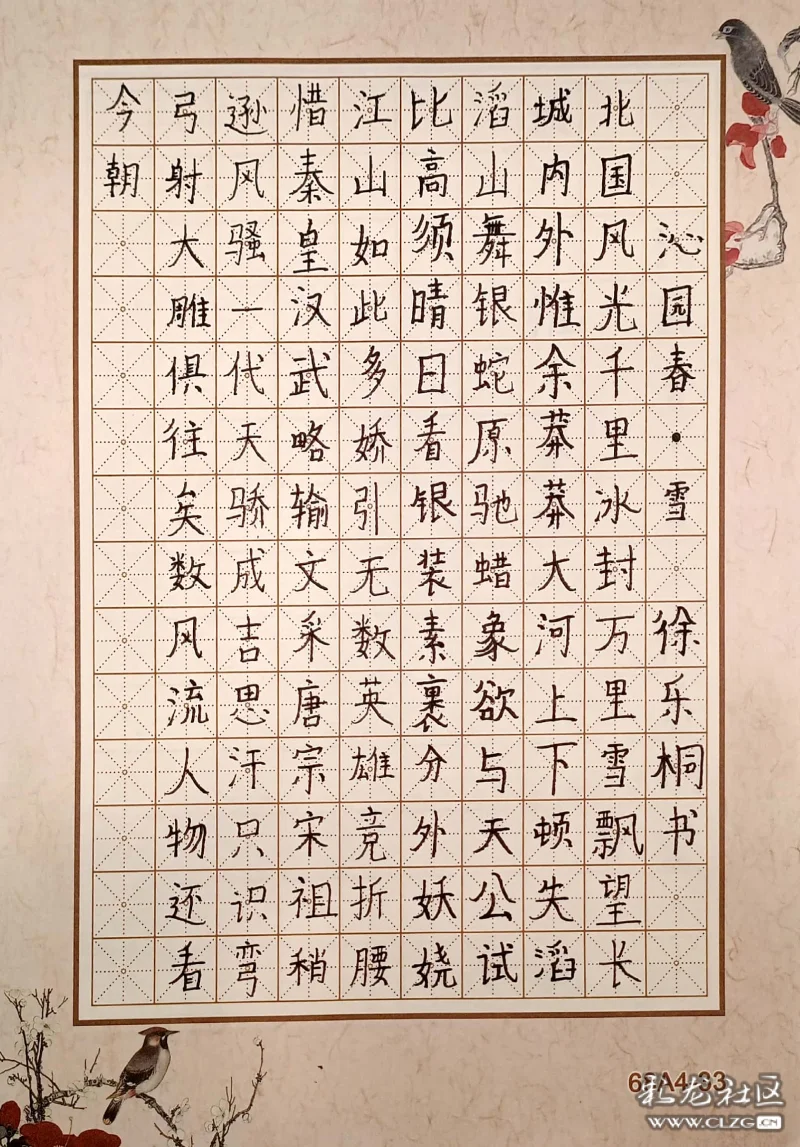 沁园春·雪 徐乐桐书
北国风光千里冰封万里雪飘望长
城内外惟余莽莽大河上下顿失滔
滔山舞银蛇原驰蜡象欲与天公试
比高须晴日看银装素裹分外妖娆
江山如此多娇引无数英雄竞折腰
惜秦皇汉武略输文采唐宗宋祖稍
逊风骚一代天骄成吉思汗只识弯
弓射大雕俱往矣数风流人物还看
今朝
彩龙社区
WWW.CLZG.CN